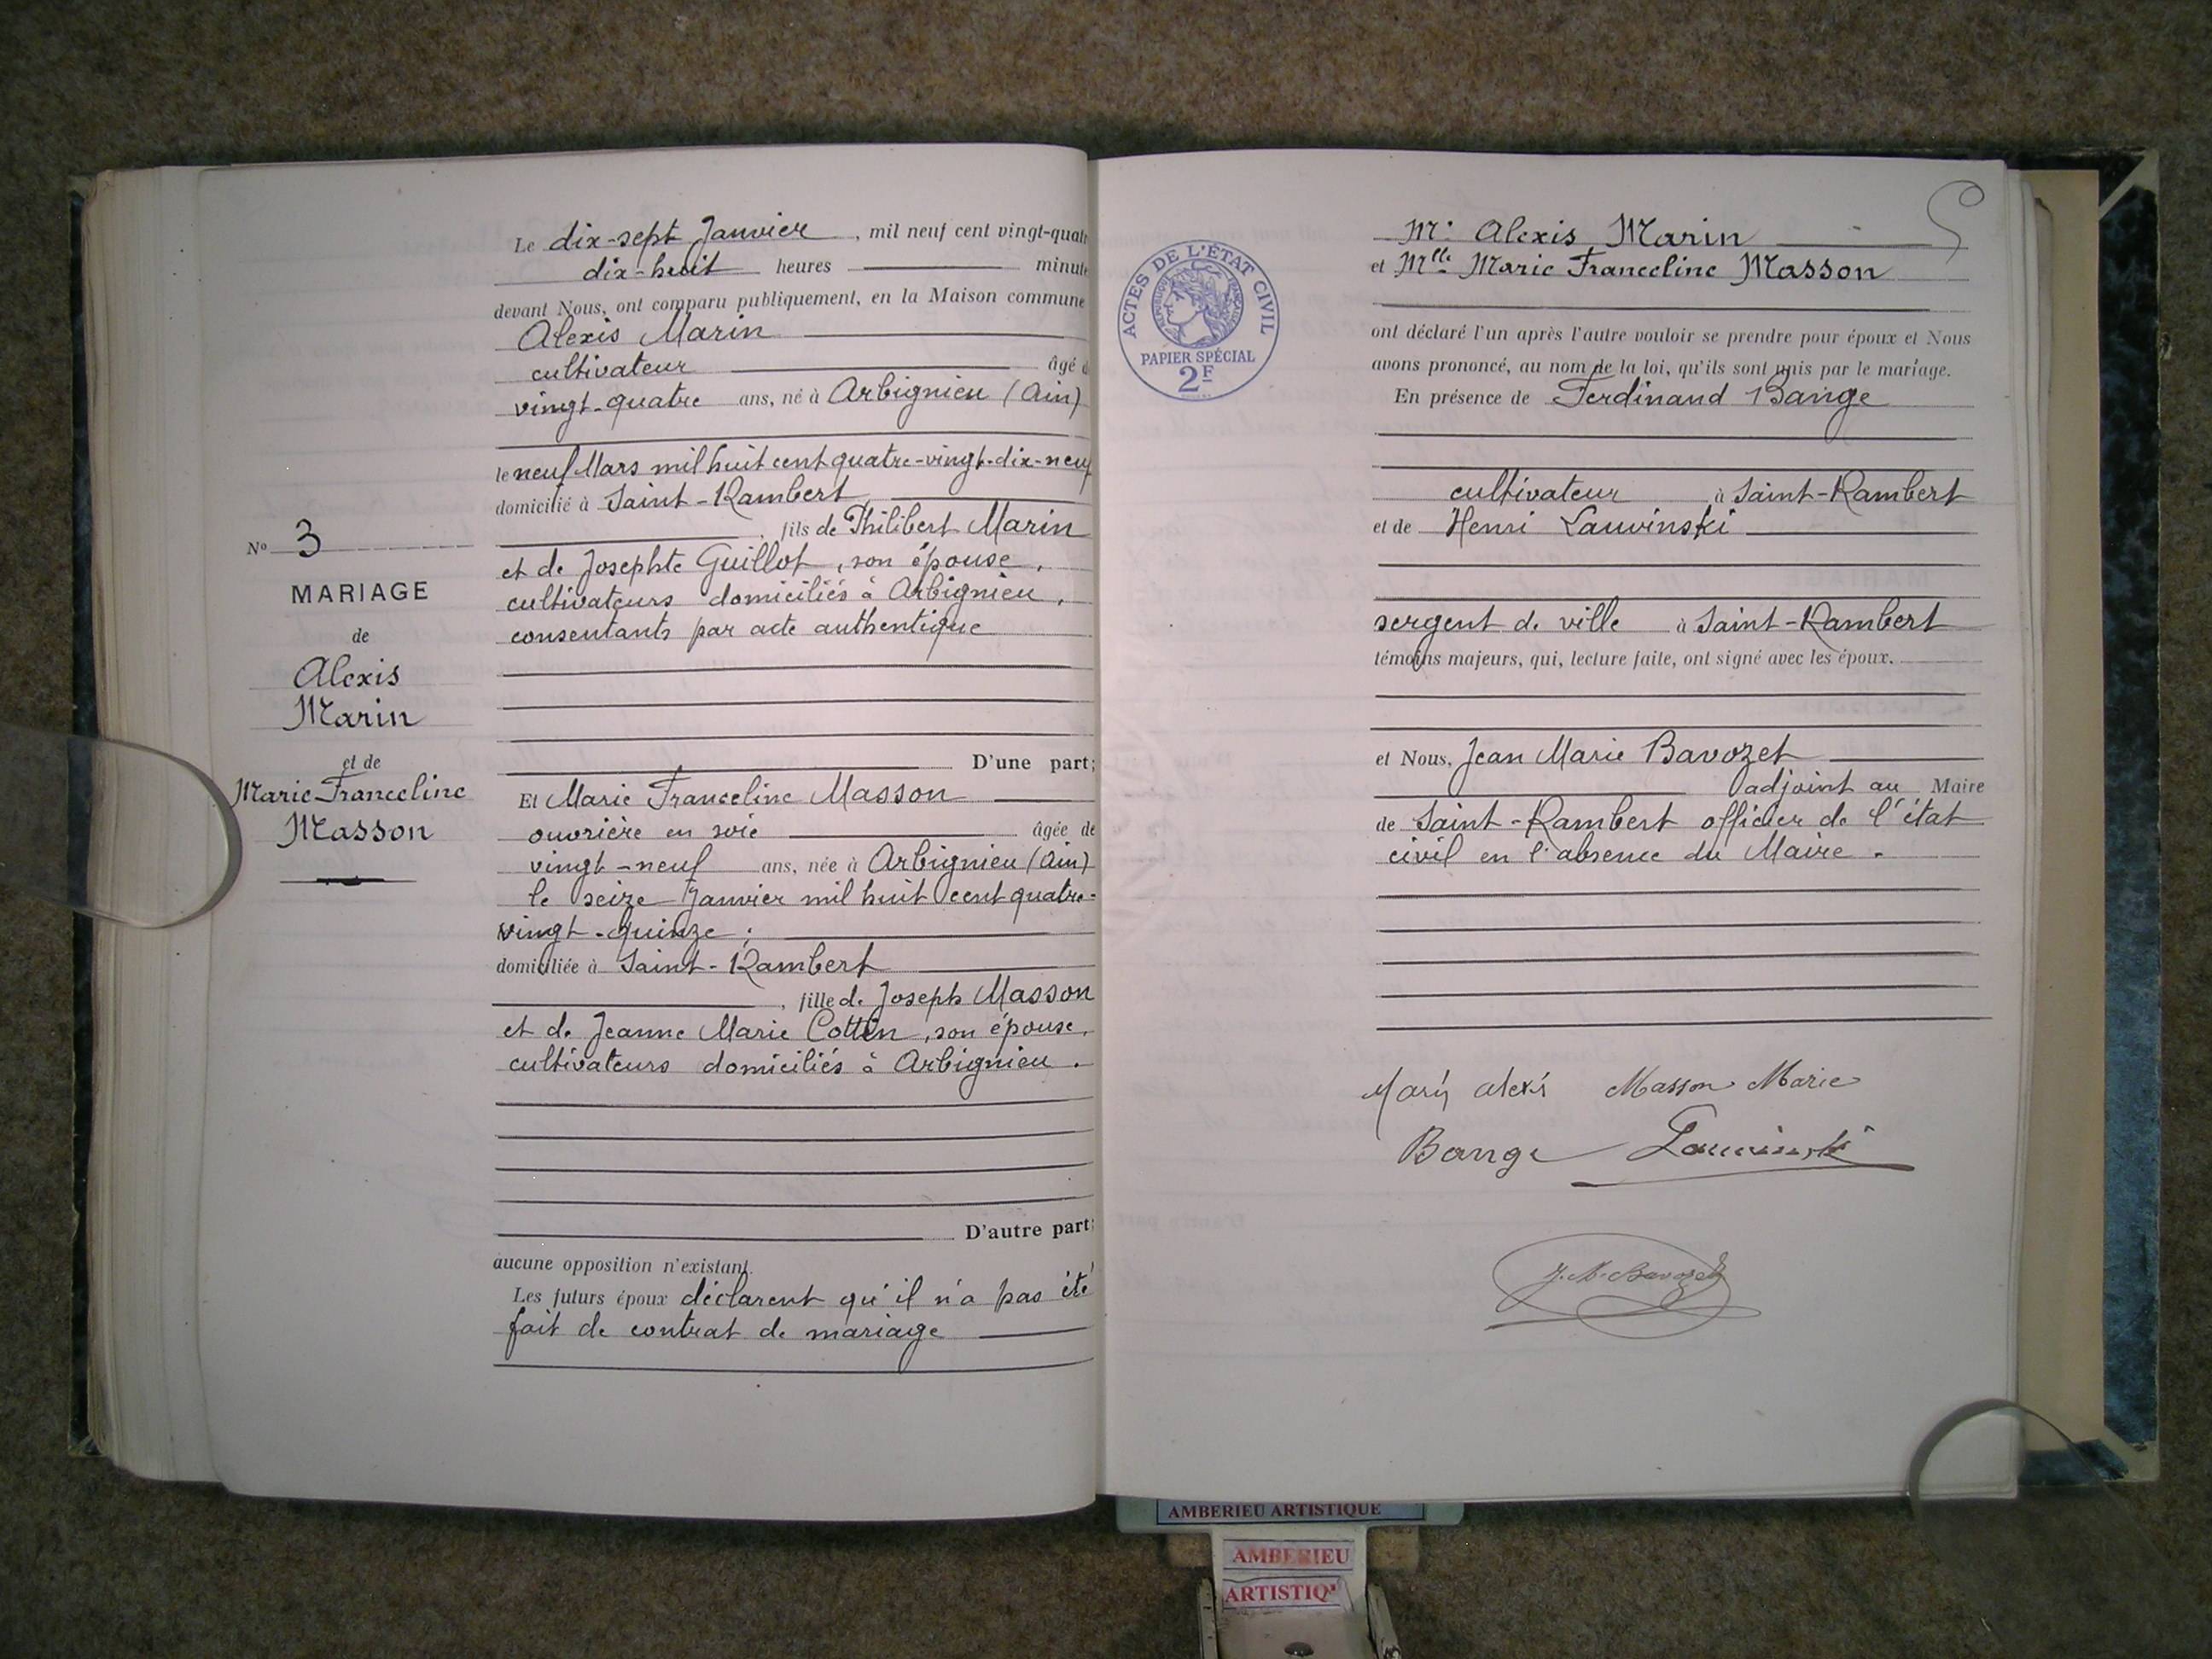 Le dix-sept Janvier, mil neuf cent vingt-quatr
dix-huit heures minute
devant Nous, ont comparu publiquement, en la Maison commune
Alexis Marin
cultivateur âgé d
vingt-quatre ans, né à Arbignieu (Ain)
le neuf Mars mil huit cent quatre-vingt-dix-neuf
domicilié à Saint-Rambert
, fils de Philibert Marin
et de Josephte Guillot, son épouse,
cultivateurs domiciliés à Arbignieu,
consentants par acte authentique
No 3
MARIAGE
de
Alexis
Marin
et de
Marie Franceline
Masson
D'une part;
Et Marie Franceline Masson
ouvrière en soie âgée de
vingt-neuf ans, née à Arbignieu (Ain)
le seize Janvier mil huit cent quatre-
vingt-quinze;
domiciliée à Saint-Rambert
, fille de Joseph Masson
et de Jeanne Marie Cottin, son épouse,
cultivateurs domiciliés à Arbignieu.
D'autre part;
aucune opposition n'existant.
Les futurs époux déclarent qu'il n'a pas été
fait de contrat de mariage
ACTES DE L'ÉTAT CIVIL
RÉPUBLIQUE FRANÇAISE
PAPIER SPÉCIAL
2F
Mr Alexis Marin
et Mlle Marie Franceline Masson
ont déclaré l'un après l'autre vouloir se prendre pour époux et Nous
avons prononcé, au nom de la loi, qu'ils sont unis par le mariage.
En présence de Ferdinand Bange
cultivateur à Saint-Rambert
et de Henri Lauvinski
sergent de ville à Saint-Rambert
témoins majeurs, qui, lecture faite, ont signé avec les époux.
et Nous, Jean Marie Bavozet
adjoint au Maire
de Saint-Rambert officier de l'état
civil en l'absence du Maire.
Marin alexis Masson Marie
Bange Lauvinski
J. M. Bavozet
AMBERIEU ARTISTIQUE
AMBERIEU
ARTISTIQ